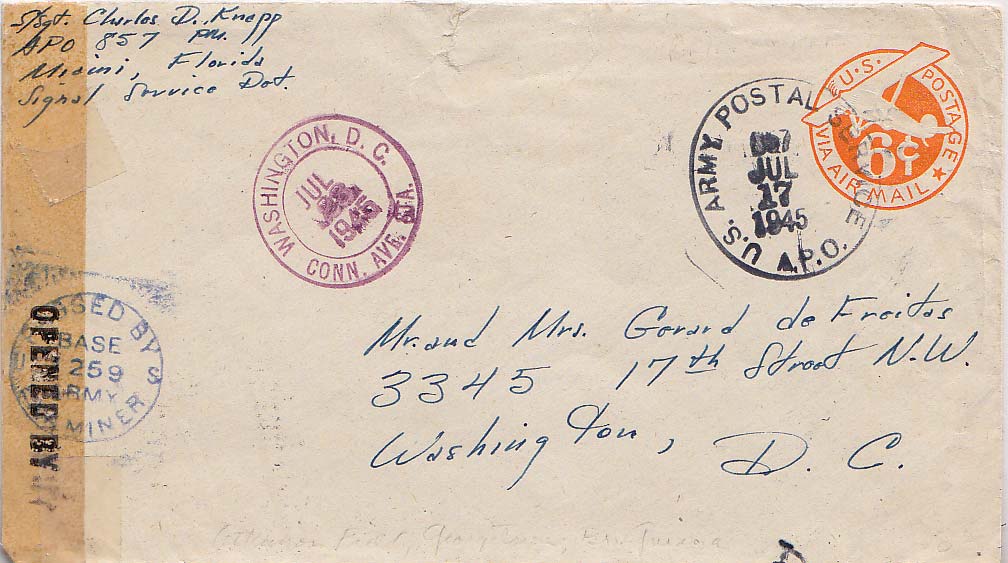 S/Sgt. Charles D. Knapp
APO 857 PM.
Miami, Florida
Signal Service Det.
WASHINGTON, D. C.
JUL
1945
CONN. AVE. STA.
U.S. ARMY POSTAL SERVICE
JUL
17
1945
A.P.O.
U.S. POSTAGE
6¢
VIA AIR MAIL
Mr. and Mrs. Gerard de Freitas
3345 17th Street N.W.
Washington, D. C.
BY
BASE
259
ARMY
MINER
OPENED BY
Atkinson Field, Georgetown, Br. Guiana